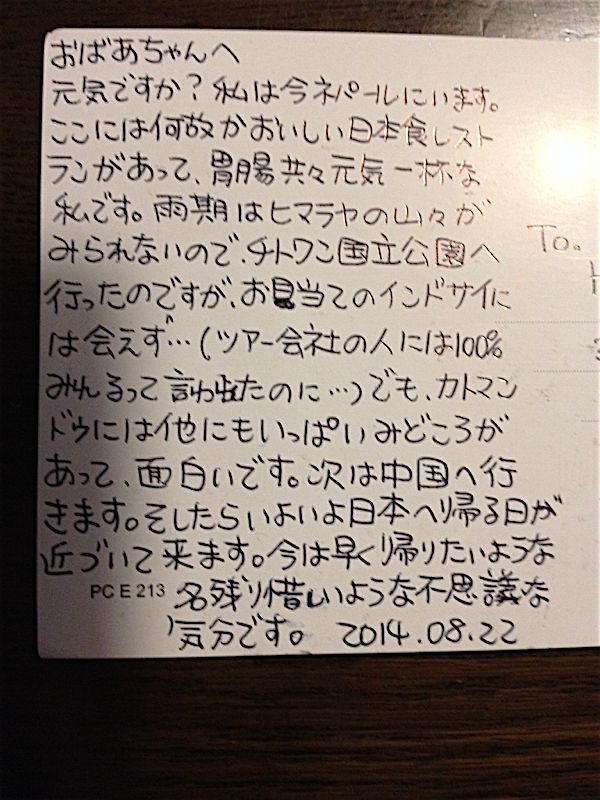 おばあちゃんへ
元気ですか？私は今ネパールにいます。
ここには何故かおいしい日本食レスト
ランがあって、胃腸共々元気一杯な
私です。雨期はヒマラヤの山々が
みられないので、チトワン国立公園へ
To.
行ったのですが、お目当てのインドサイに
は会えず…(ツアー会社の人には100%
みれるって言われたのに…)でも、カトマン
ドゥには他にもいっぱいみどころが
あって、面白いです。次は中国へ行
きます。そしたらいよいよ日本へ帰る日が
近づいて来ます。今は早く帰りたいような
PC E 213 名残り惜しいような不思議な
気分です。 2014.08.22